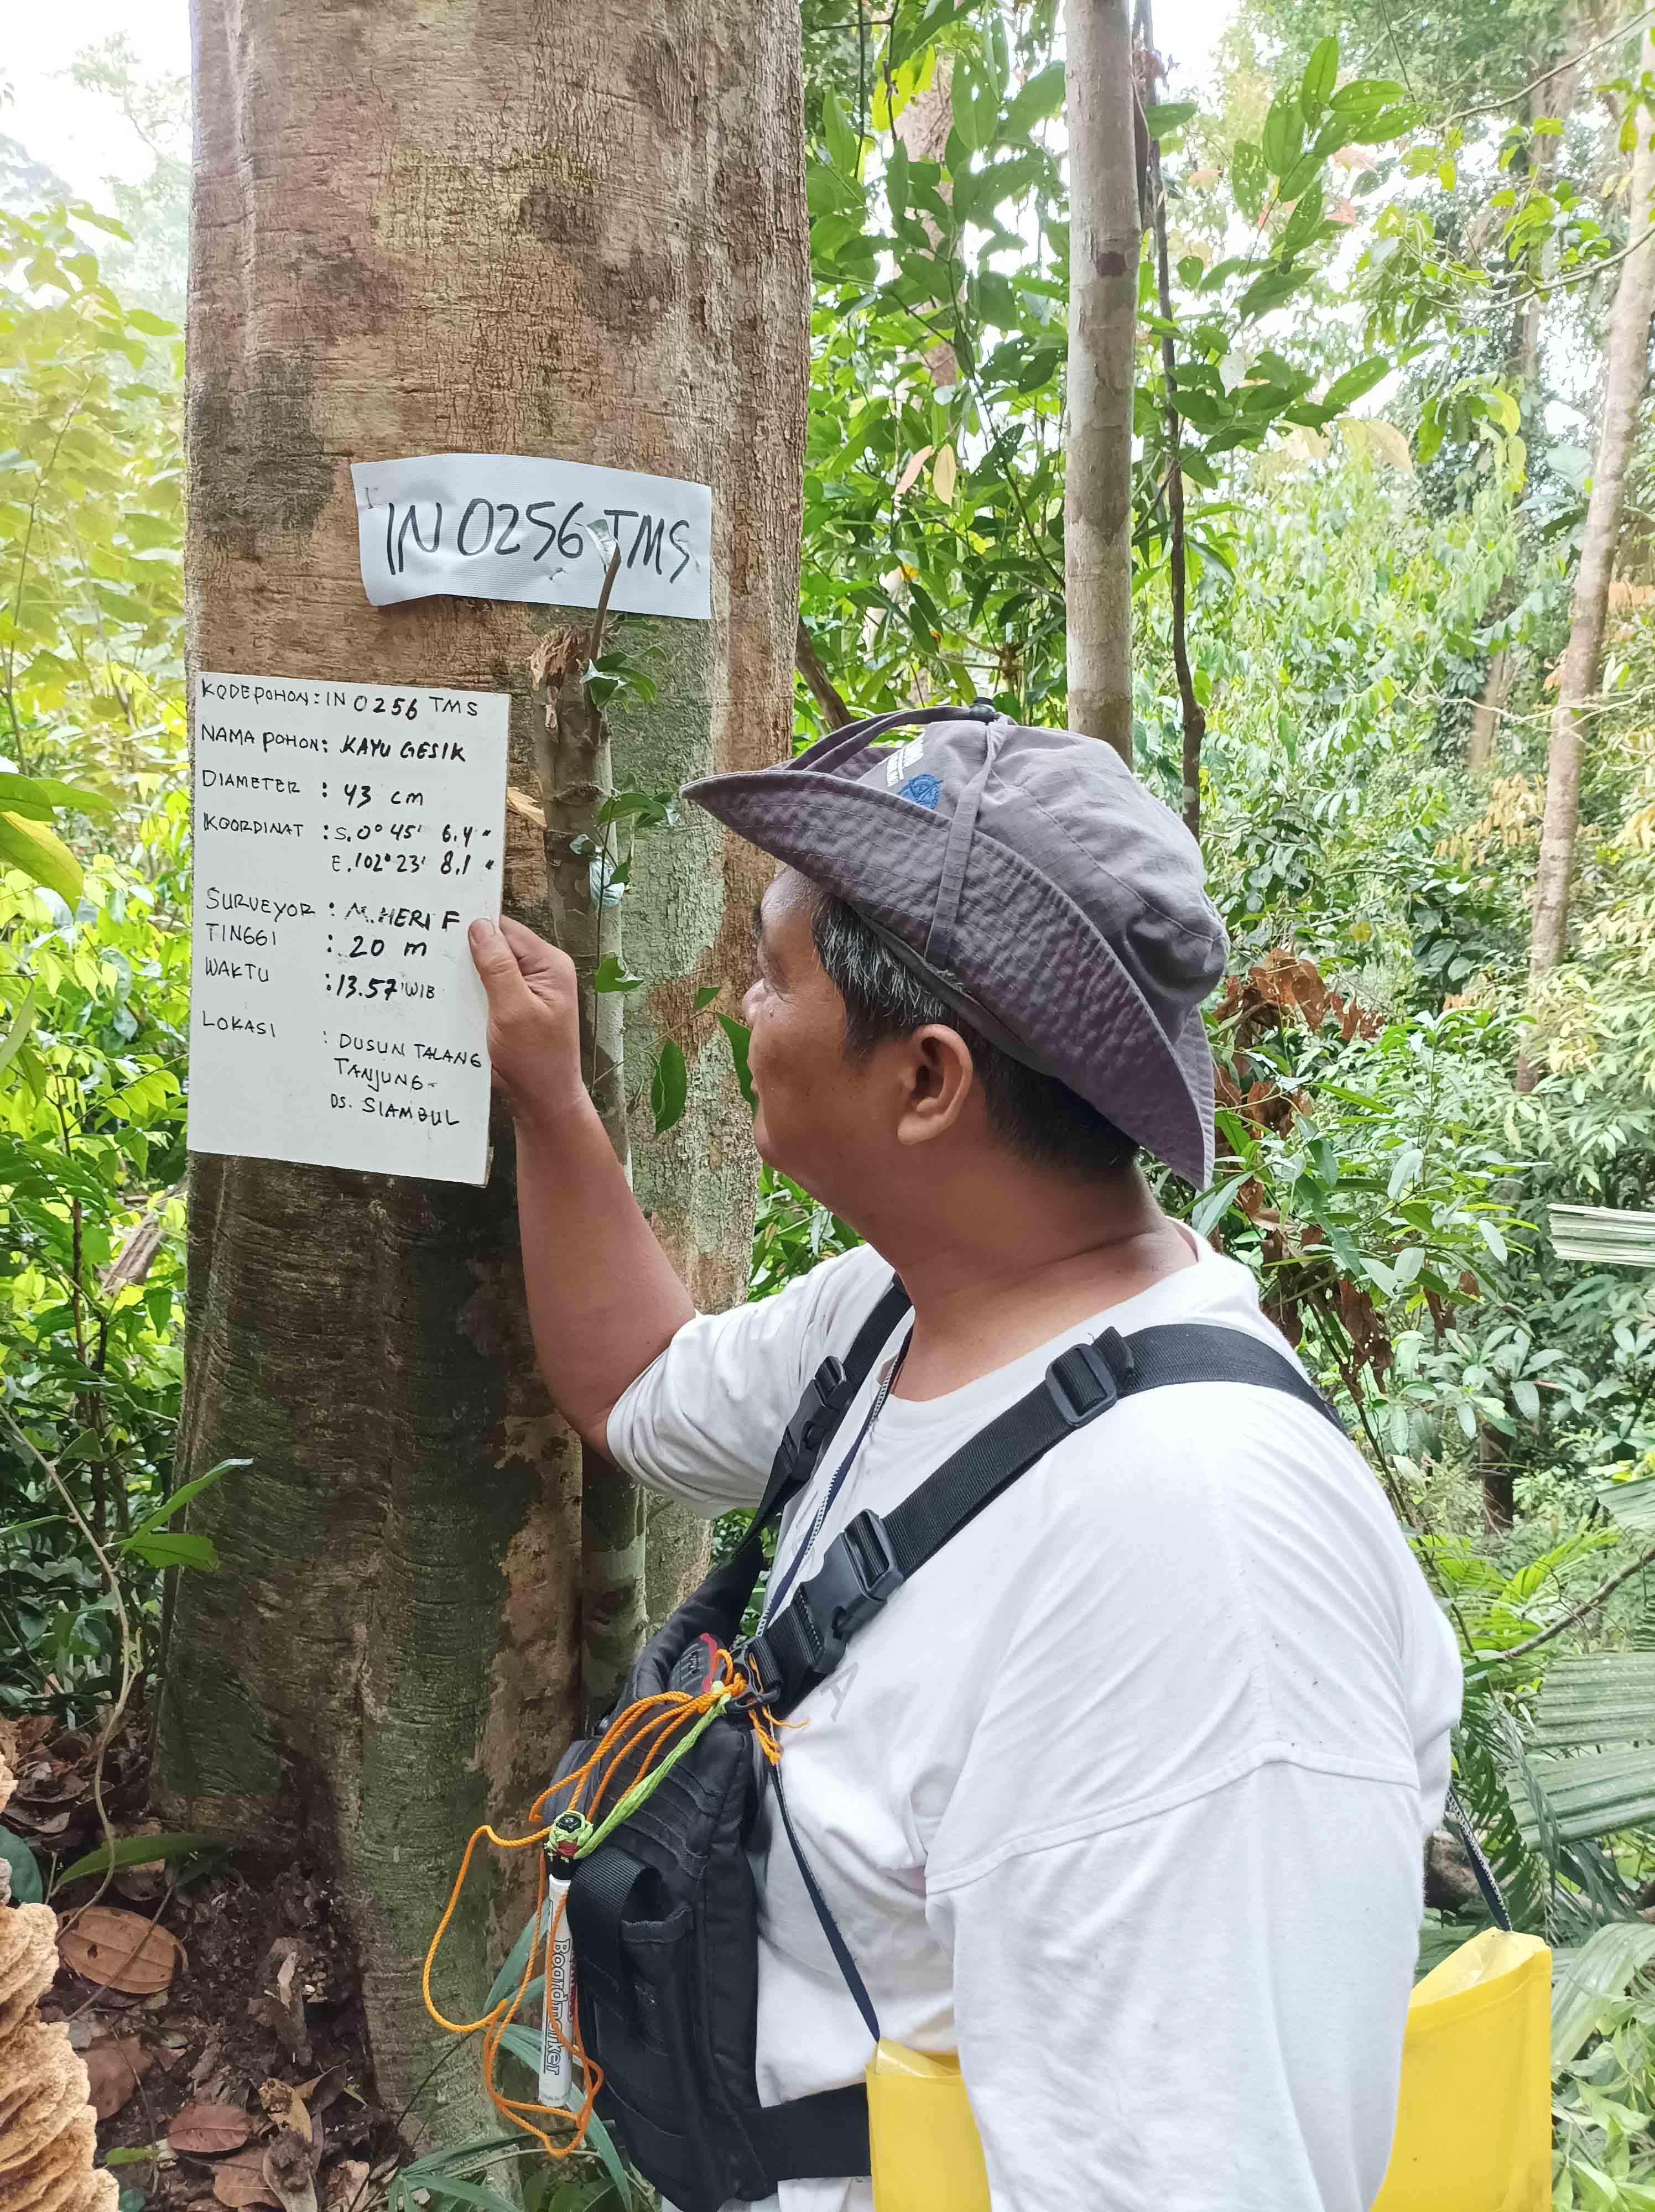 IN 0256 TMS
KODE POHON : IN 0256 TMS
NAMA POHON : KAYU GESIK
DIAMETER : 43 cm
KOORDINAT : S. 0° 45' 6.4"
E. 102° 23' 8.1"
SURVEYOR : M. HERI F
TINGGI : 20 m
WAKTU : 13.57 WIB
LOKASI : DUSUN TALANG
TANJUNG -
DS. SIAMBUL
Boardmarker